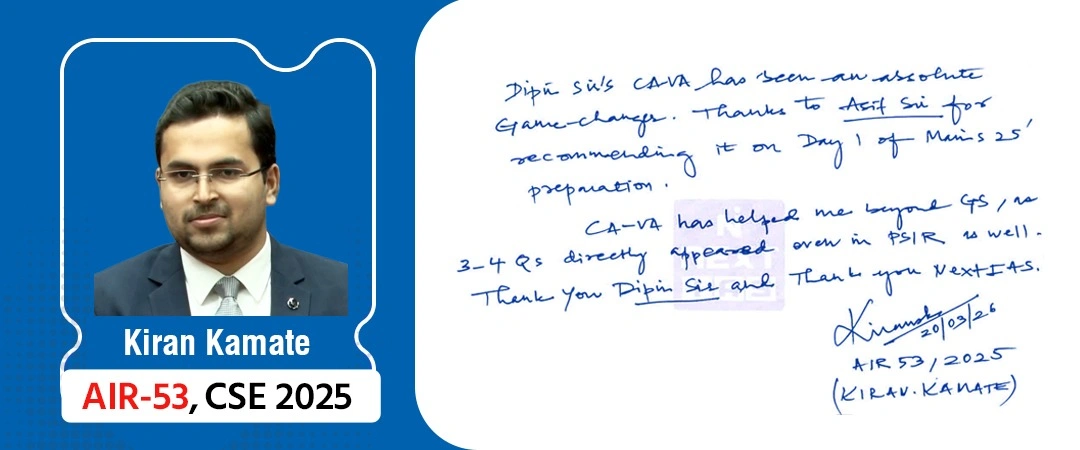 Kiran Kamate
AIR-53, CSE 2025
Dipin Sir's CA-VA has been an absolute
Game-changer. Thanks to Asif Sir for
recommending it on Day 1 of Mains 25'
preparation.
CA-VA has helped me beyond GS, as
3-4 Qs directly appeared even in PSIR as well.
Thank You Dipin Sir and Thank you NextIAS.
20/03/26
AIR 53, 2025
(KIRAN.KAMATE)
N
NEXT
IAS